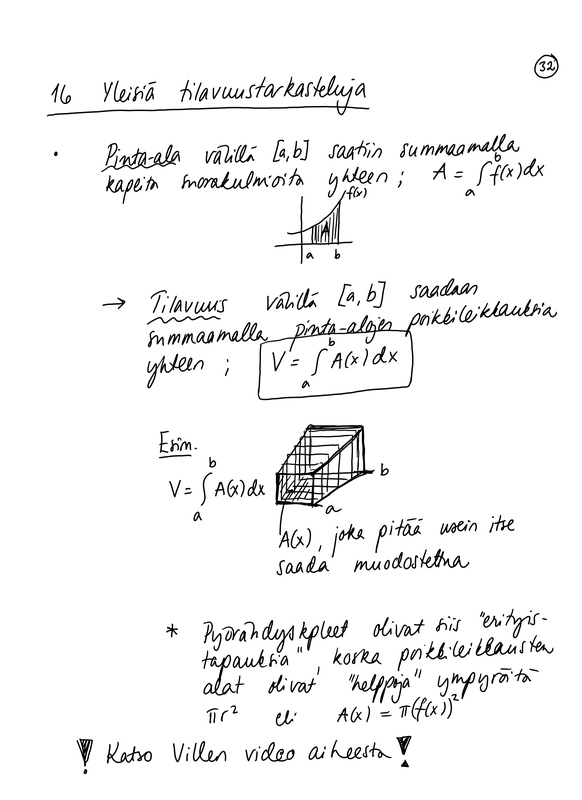 32
16 Yleisiä tilavuustarkasteluja
• Pinta-ala välillä [a,b] saatiin summaamalla
kapeita suorakulmioita yhteen; A = ∫ₐᵇ f(x)dx
f(x)
A
a b
→ Tilavuus välillä [a,b] saadaan
summaamalla pinta-alojen poikkileikkauksia
yhteen; V = ∫ₐᵇ A(x)dx
Esim.
V = ∫ₐᵇ A(x)dx
b
a
A(x), joka pitää usein itse
saada muodostettua
* Pyörähdyskpleet olivat siis "erityis-
tapauksia", koska poikkileikkausten
alat olivat "helppoja" ympyröitä
πr² eli A(x) = π(f(x))²
! Katso Villen video aiheesta !